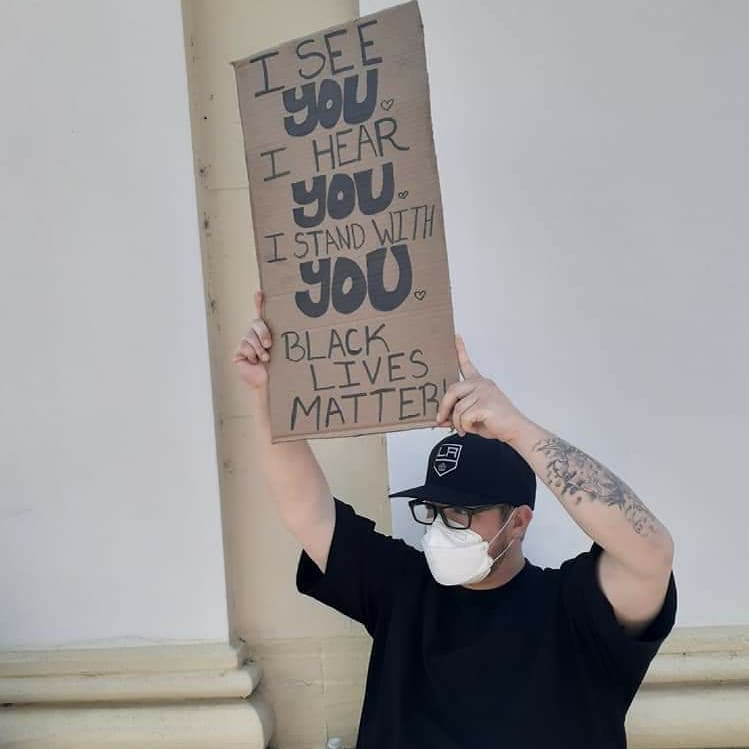 I SEE
YOU.
I HEAR
YOU.
I STAND WITH
YOU
BLACK
LIVES
MATTER!
LA